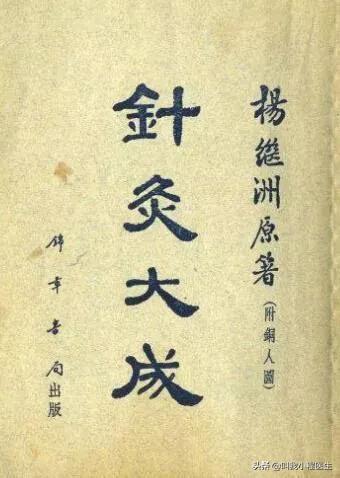 楊繼洲原著(附銅人圖)
針灸大成
錦章書局出版
头条 @叫我小程医生